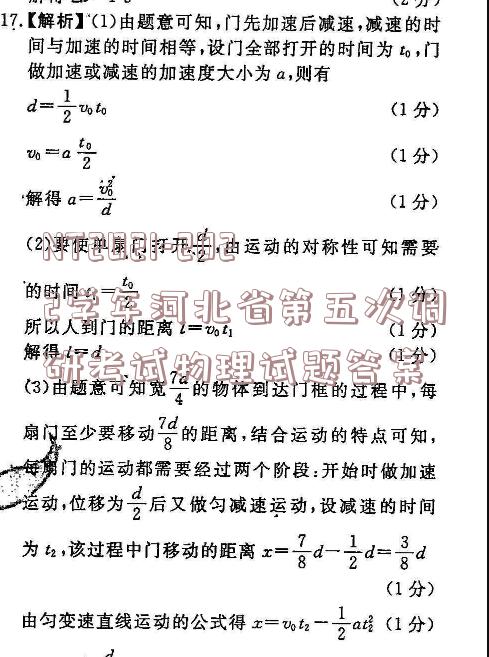 17.【解析】(1)由题意可知,门先加速后减速,减速的时
间与加速的时间相等,设门全部打开的时间为 t₀,门
做加速或减速的加速度大小为 a,则有
d=1/2 v₀t₀ (1 分)
v₀=a t₀/2 (1 分)
解得 a=v₀²/d (1 分)
(2)要使单扇门打开 d/2,由运动的对称性可知需要
的时间 t₁=t₀/2 (1 分)
所以人到门的距离 l=v₀t₁ (1 分)
解得 l=d (1 分)
(3)由题意可知宽 7d/4 的物体到达门框的过程中,每
扇门至少要移动 7d/8 的距离,结合运动的特点可知,
每扇门的运动都需要经过两个阶段:开始时做加速
运动,位移为 d/2 后又做匀减速运动,设减速的时间
为 t₂,该过程中门移动的距离 x=7/8 d-1/2 d=3/8 d
(1 分)
由匀变速直线运动的公式得 x=v₀t₂-1/2 at₂² (1 分)
2学年河北省第五次调
研考试物理试题答案